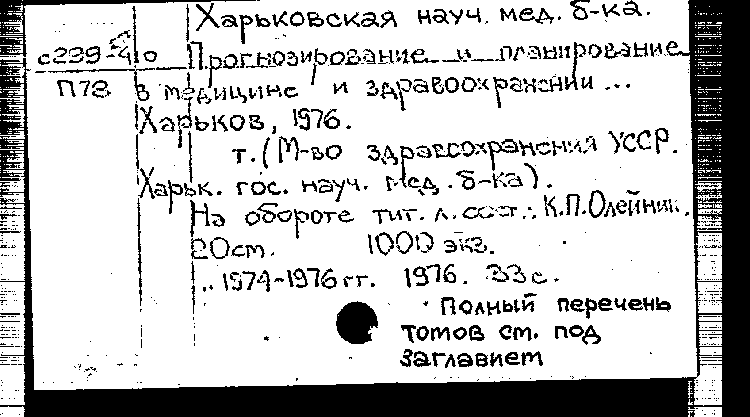 Харьковская науч. мед. б-ка.
с239-4 о Прогнозирование и планирование
П78 в медицине и здравоохранении ...
Харьков, 1976.
т. (М-во здравоохранения УССР.
Харьк. гос. науч. мед. б-ка).
На обороте тит. л. сост.: К.П.Олейник.
20см. 1000 экз.
.. 1974-1976 гг. 1976. 33 с.
Полный перечень
томов см. под
заглавием